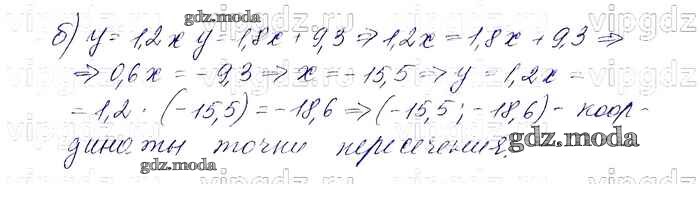 б) y = 1,2x y = 1,8x + 9,3 ⇒ 1,2x = 1,8x + 9,3 ⇒
⇒ 0,6x = -9,3 ⇒ x = -15,5 ⇒ y = 1,2x =
= 1,2 · (-15,5) = -18,6 ⇒ (-15,5; -18,6) - коор-
динаты точки пересечения.
gdz.moda
gdz.moda
gdz.moda
gdz.moda
vipgdz.ru